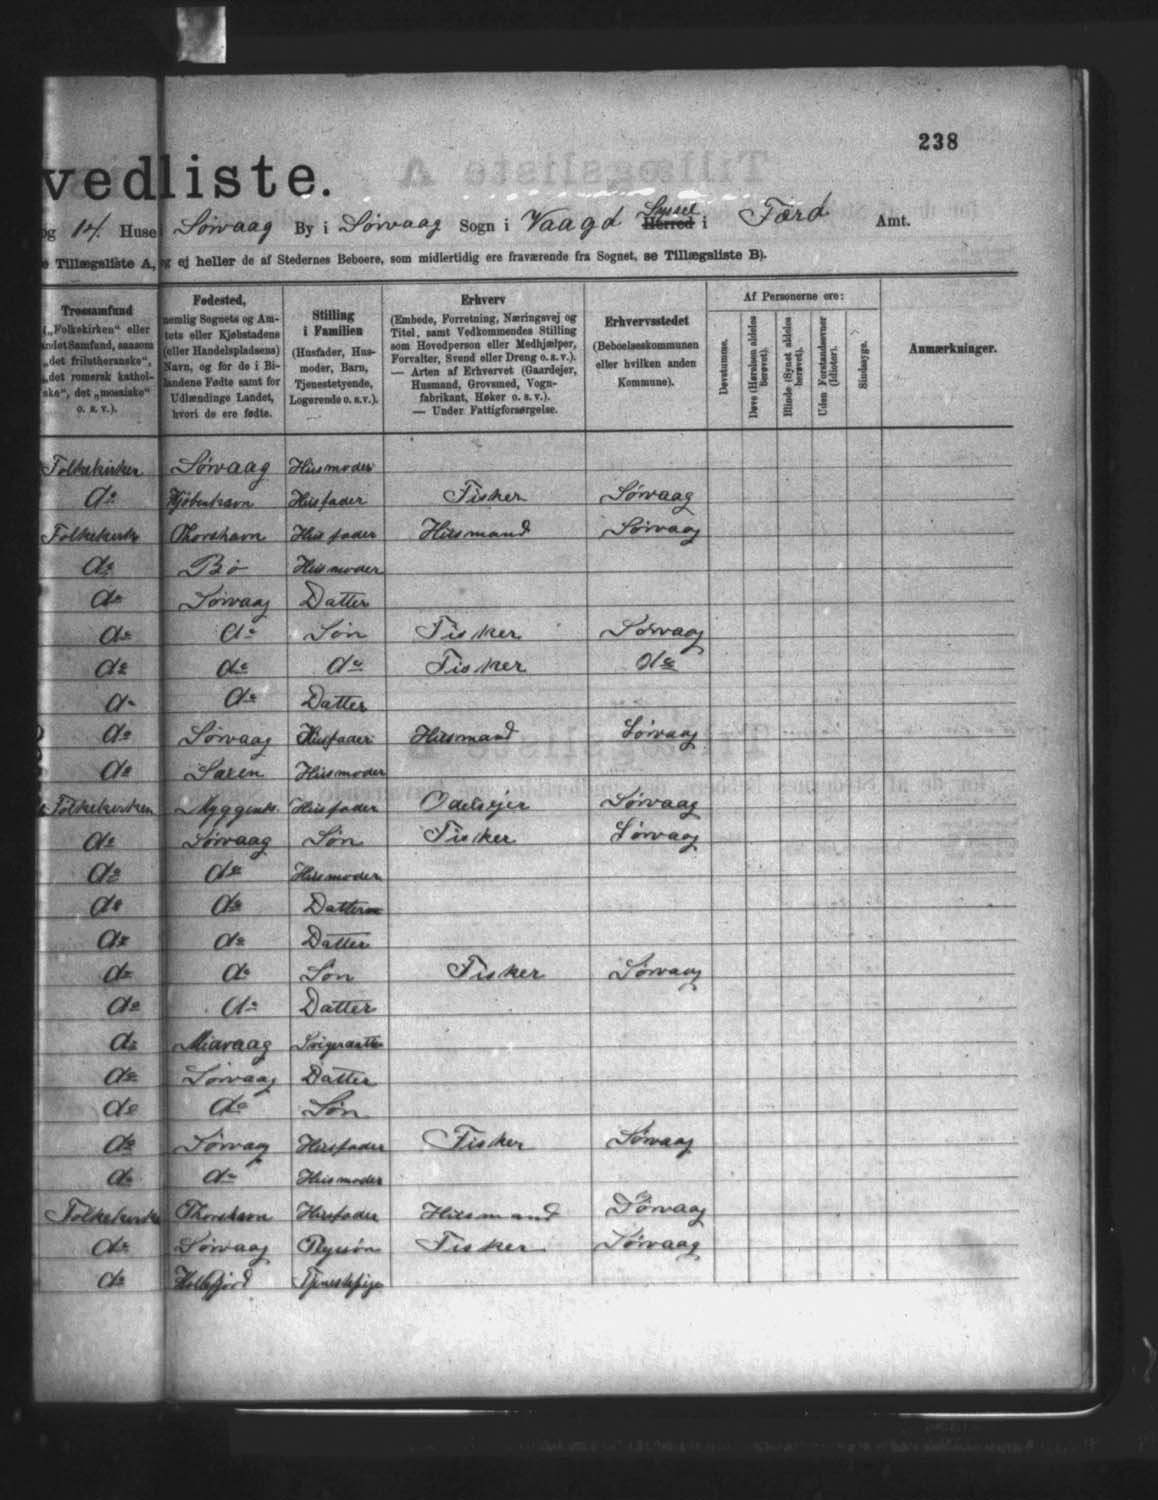 238
vedliste.
og 14. Huse Sørvaag By i Sørvaag Sogn i Vaagø Herred Syssel i Færø Amt.
e Tillægsliste A, og ej heller de af Stedernes Beboere, som midlertidig ere fraværende fra Sognet, se Tillægsliste B).
Trossamfund
(„Folkekirken“ eller
andet Samfund, saasom
„det frilutheranske“,
„det romersk kathol-
ske“, det „mosaiske“
o. s. v.).
Fødested,
nemlig Sognets og Am-
tets eller Kjøbstadens
(eller Handelspladsens)
Navn, og for de i Bi-
landene Fødte samt for
Udlændinge Landet,
hvori de ere fødte.
Stilling
i Familien
(Husfader, Hus-
moder, Barn,
Tjenestetyende,
Logerende o. s. v.).
Erhverv
(Embede, Forretning, Næringsvej og
Titel, samt Vedkommendes Stilling
som Hovedperson eller Medhjælper,
Forvalter, Svend eller Dreng o. s. v.).
— Arten af Erhvervet (Gaardejer,
Husmand, Grovsmed, Vogn-
fabrikant, Høker o. s. v.).
— Under Fattigforsørgelse.
Erhvervsstedet
(Beboelseskommunen
eller hvilken anden
Kommune).
Af Personerne ere:
Døvstumme.
Døve (Hørelsen aldeles
berøvet).
Blinde (Synet aldeles
berøvet).
Uden Forstandsevner
(Idioter).
Sindssyge.
Anmærkninger.
Folkekirken Sørvaag Husmoder
do Kjøbenhavn Husfader Fisker Sørvaag
Folkekirke Thorshavn Husfader Husmand Sørvaag
do Bø Husmoder
do Sørvaag Datter
do do Søn Fisker Sørvaag
do do do Fisker do
do do Datter
do Sørvaag Husfader Husmand Sørvaag
do Saxen Husmoder
Folkekirken Myggenæs Husfader Odelsejer Sørvaag
do Sørvaag Søn Fisker Sørvaag
do do Husmoder
do do Datter
do do Datter
do do Søn Fisker Sørvaag
do do Datter
do Miavaag
do Sørvaag Datter
do do Søn
do Sørvaag Husfader Fisker Sørvaag
do do Husmoder
Folkekirke Thorshavn Husfader Husmand Sørvaag
do Sørvaag Plejesøn Fisker Sørvaag
do Tjenestepige